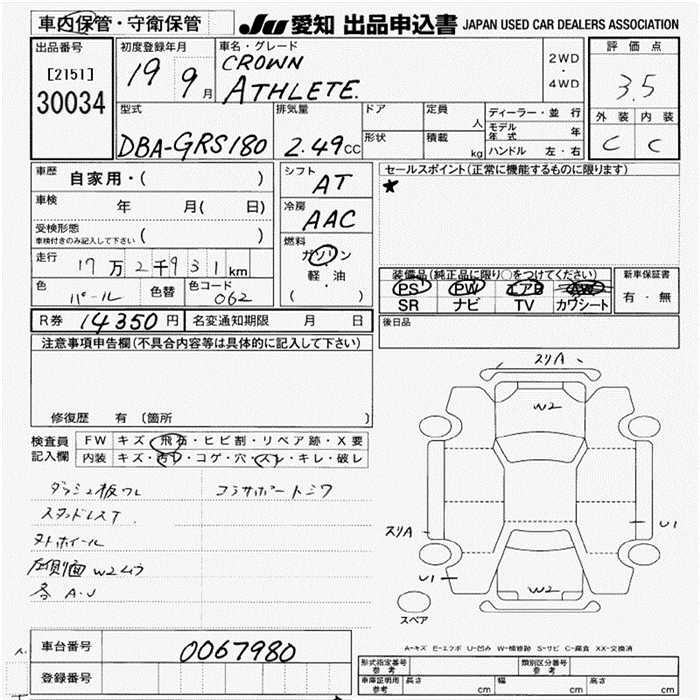 車内保管・守衛保管
JU 愛知 出品申込書 JAPAN USED CAR DEALERS ASSOCIATION
出品番号
[2151]
30034
初度登録年月
19 9月
車名・グレード
CROWN
ATHLETE.
2WD
・
4WD
評価点
3.5
外装 内装
C C
型式
DBA-GRS180
排気量
2.49CC
ドア
形状
定員 人
積載 kg
ディーラー・並行
モデル年式 年
ハンドル 左・右
車歴 自家用・( )
車検 年 月( 日)
受検形態
車検付きのみ記入して下さい ( )
走行 17万2千931km
色 パール 色替 色コード 062
シフト
AT
冷房
AAC
燃料
ガソリン
・
軽・油
( )
セールスポイント(正常に機能するものに限ります)
★
装備品(純正品に限り○をつけてください)
PS PW エアB AW
SR ナビ TV カワシート
新車保証書
有・無
R券 14350円 名変通知期限 月 日
後日品
注意事項申告欄(不具合内容等は具体的に記入して下さい)
修復歴 有 〔箇所 〕
検査員
記入欄
FW キズ・飛石・ヒビ割・リペア跡・X要
内装 キズ・汚れ・コゲ・穴・スレ・キレ・破レ
ダッシュ板ワレ
スタッドレスT
ヌキホイール
W2ムラ
各 A.U
スリA
W2
スリA
U1
U1
W2
スペア
A-キズ E-エクボ U-凹み W-補修跡 S-サビ C-腐食 XX-交換済
車台番号 0067980
登録番号
型式指定番号
参考
類別区分番号
参考
車庫証明用
参考
長さ cm 幅 cm 高さ cm